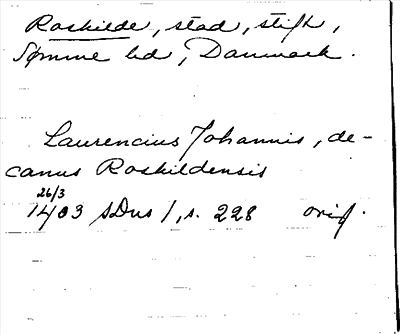 Roskilde, stad, stift,
Sømme hd, Danmark.
Laurencius Johannis, de-
canus Roskildensis
26/3
1403 SDns 1, s. 228 orig.